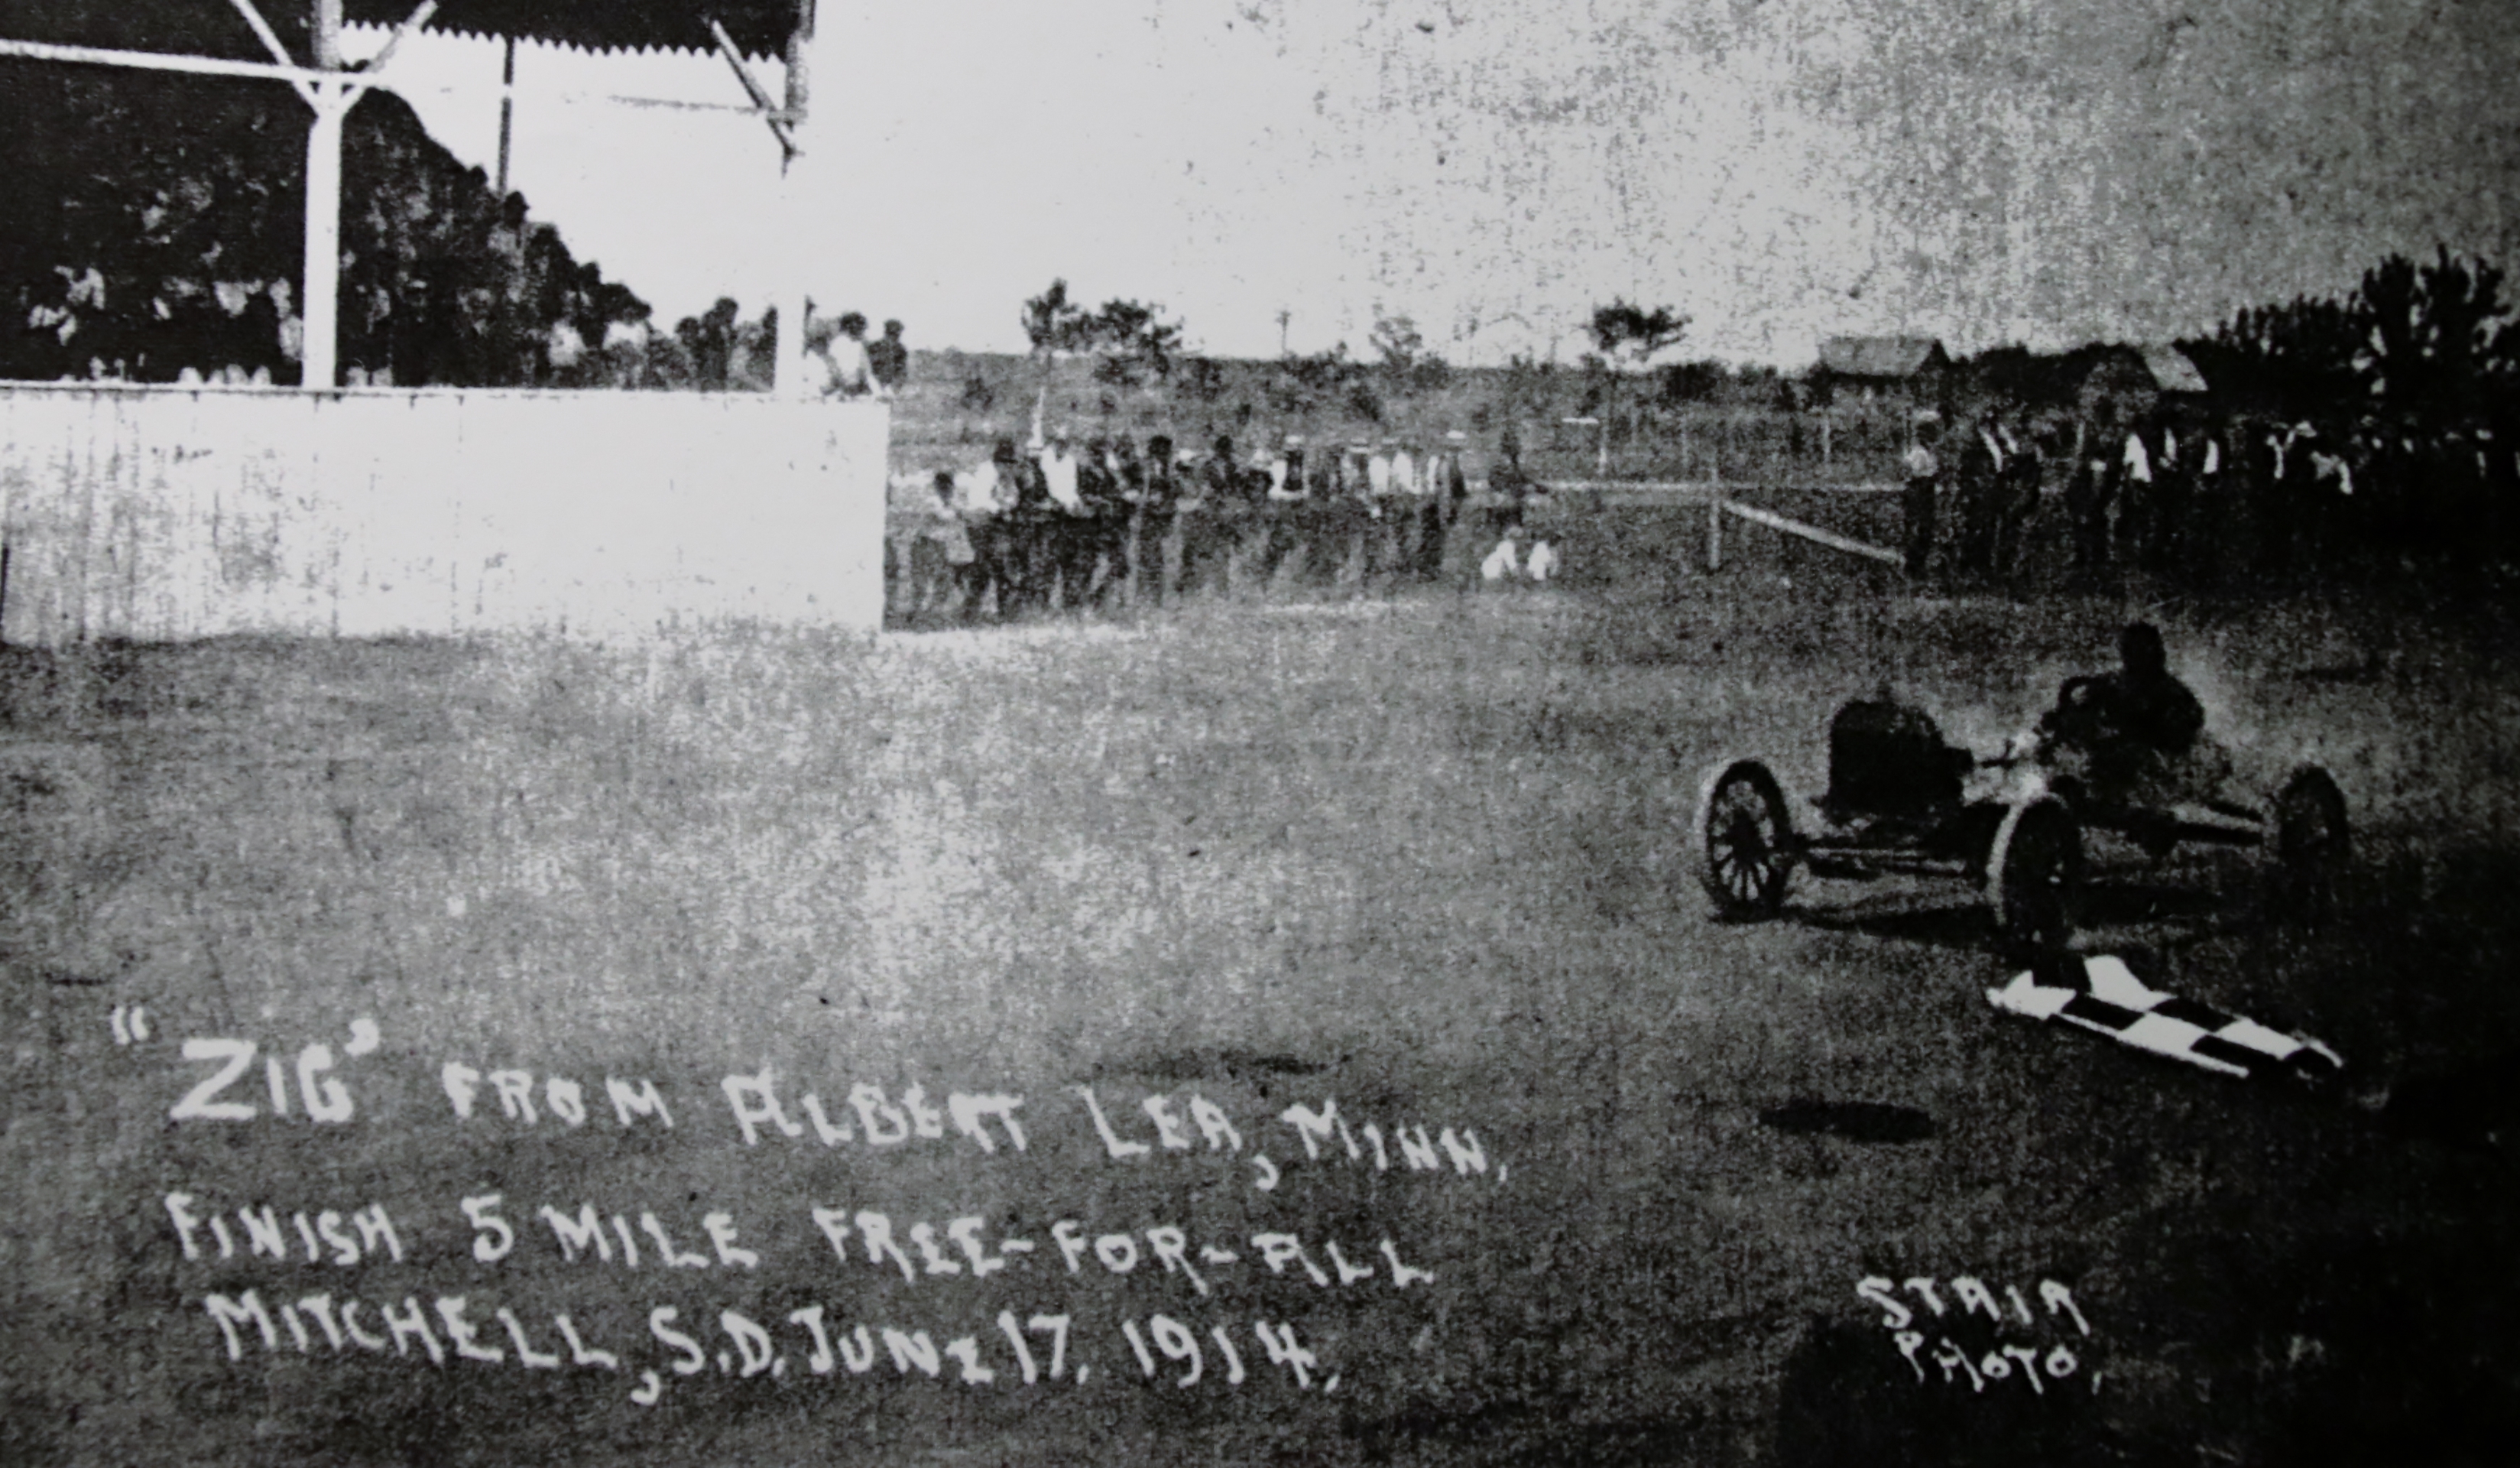 "ZIG" FROM ALBERT LEA, MINN,
FINISH 5 MILE FREE-FOR-ALL
MITCHELL, S.D. JUNE 17, 1914,
STAIR
PHOTO,